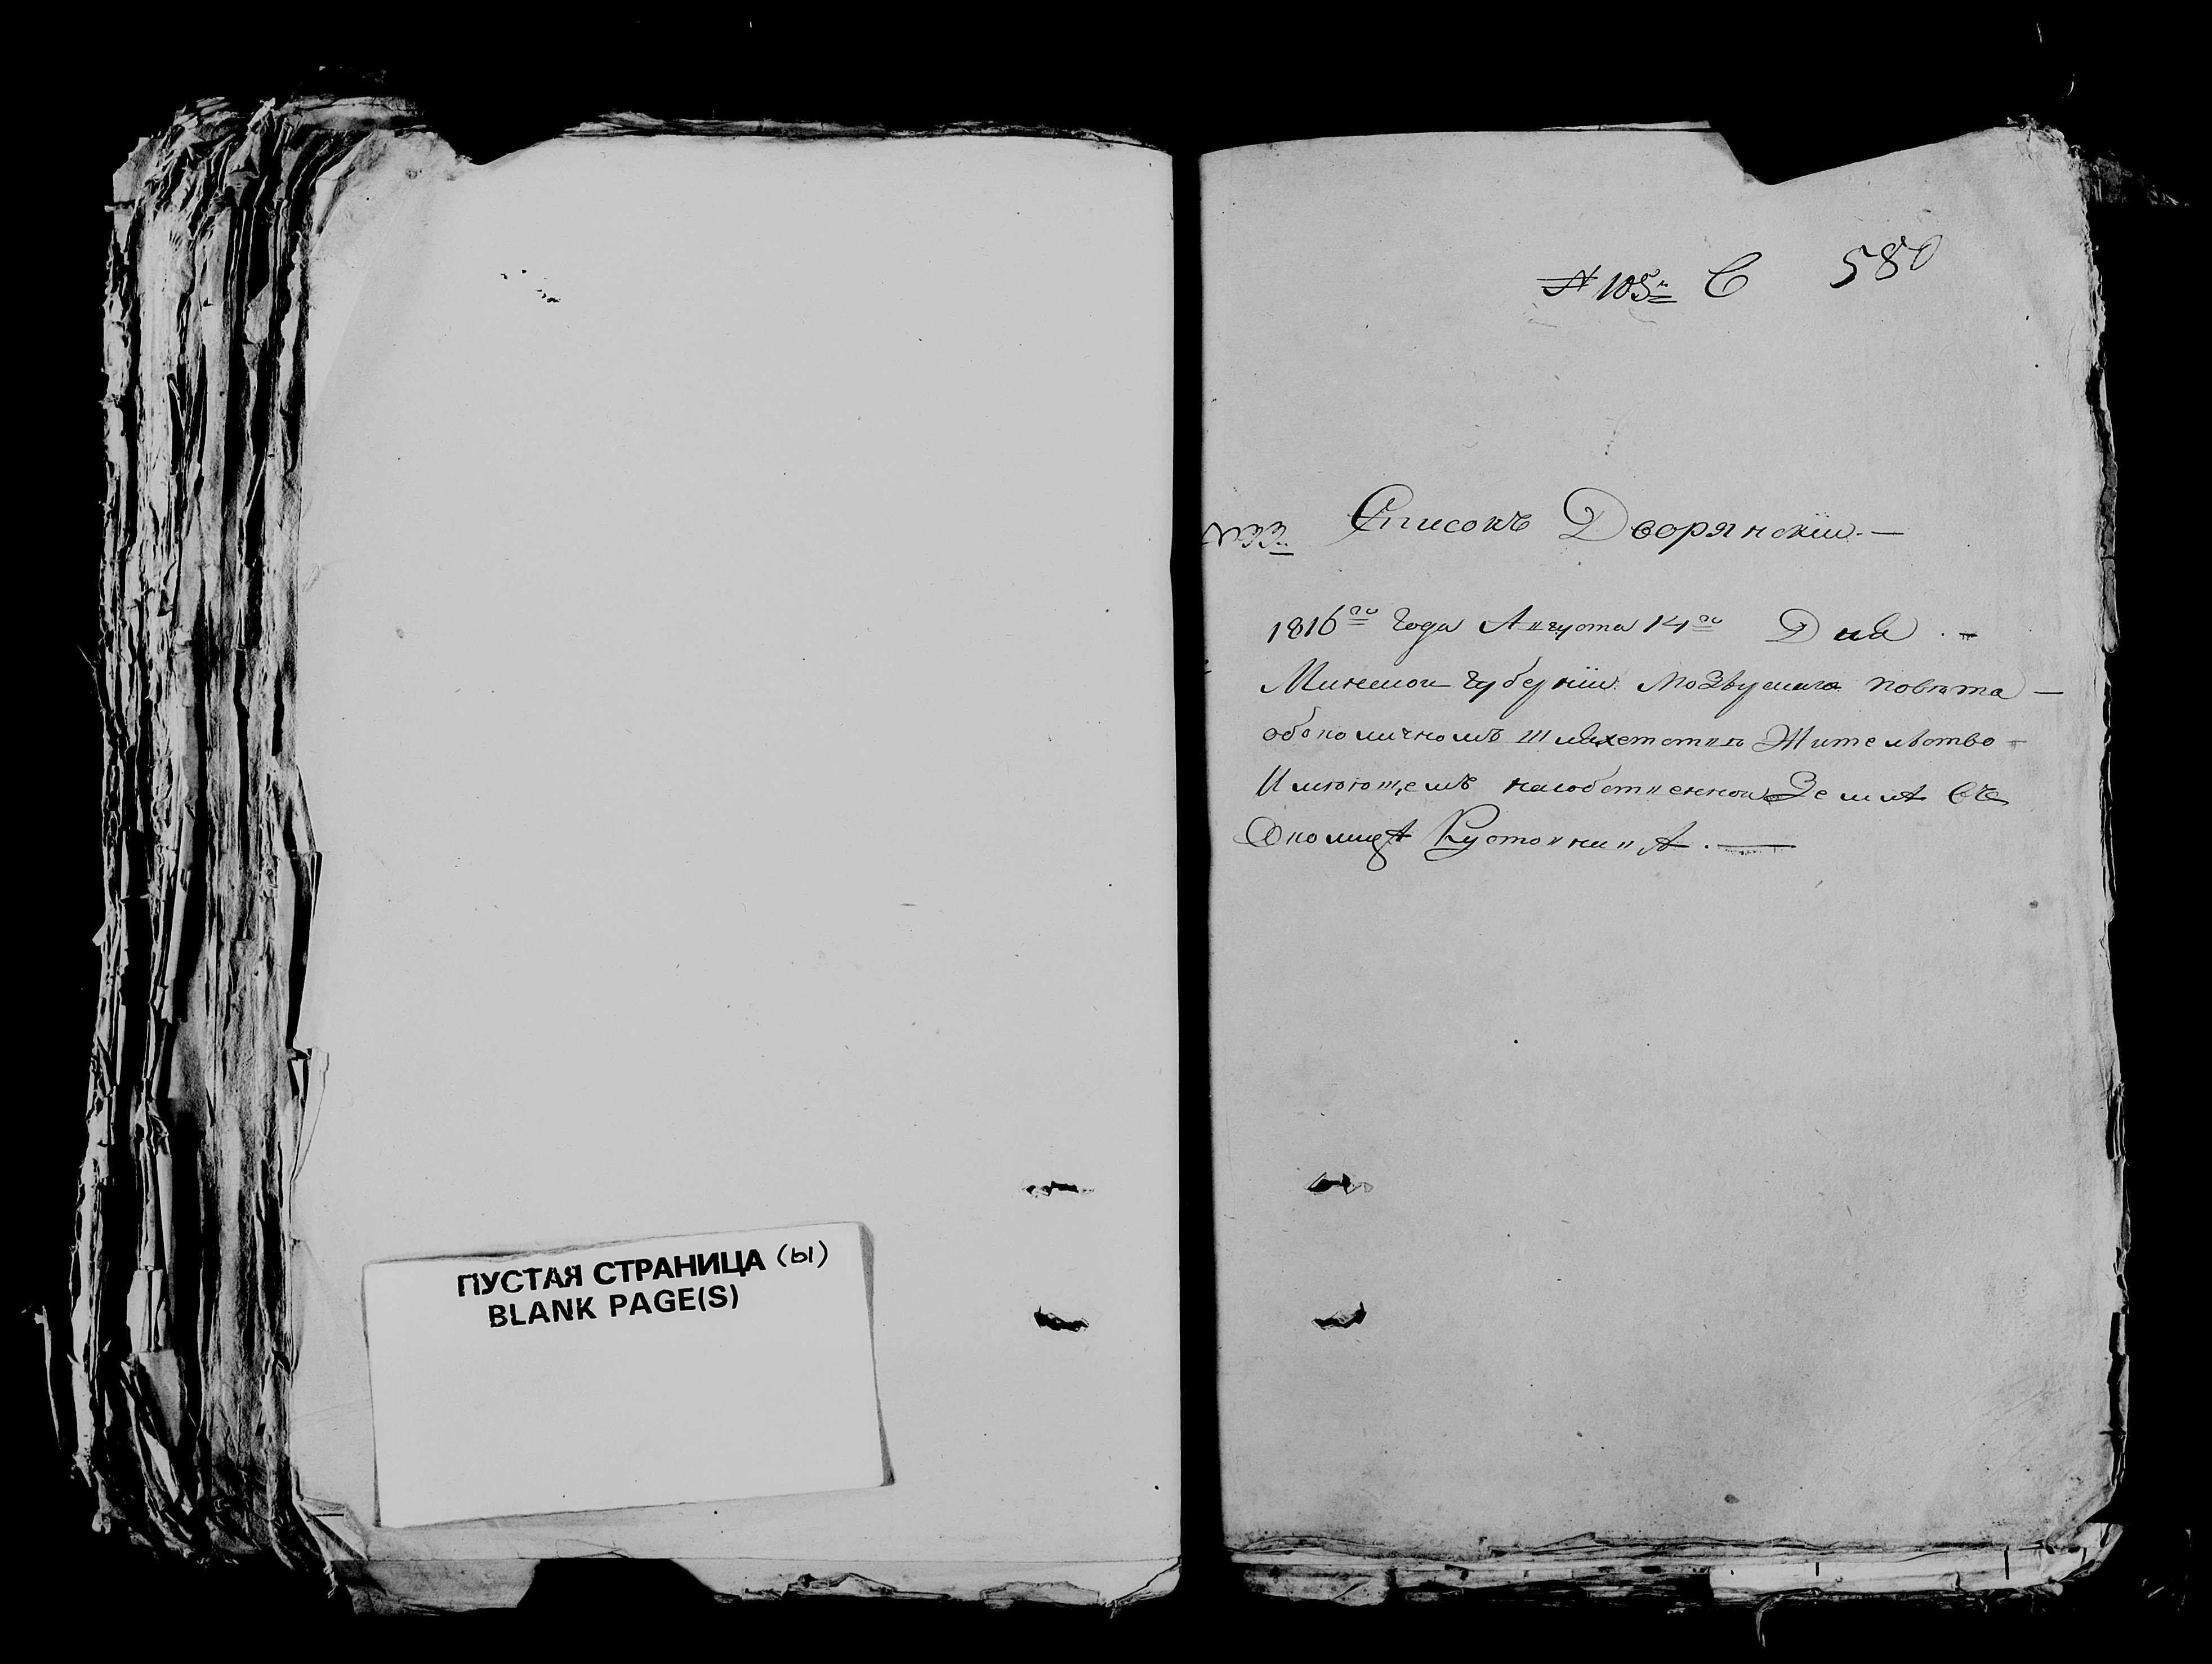 ПУСТАЯ СТРАНИЦА (Ы)
BLANK PAGE(S)
№ 105й С 580
№ 33й Списокъ Дворянскіи. —
1816го Года Августа 14го Дня . —
Минской Губерніи Мозырскаго повѣта —
объ околичномъ шляхетствѣ Жительство —
Имѣющемъ на собственной Землѣ въ
Околицѣ . —